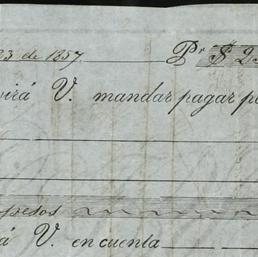 23 de 1857. Pr. $ 23
irá V. mandar pagar p
pesos
á V. en cuenta